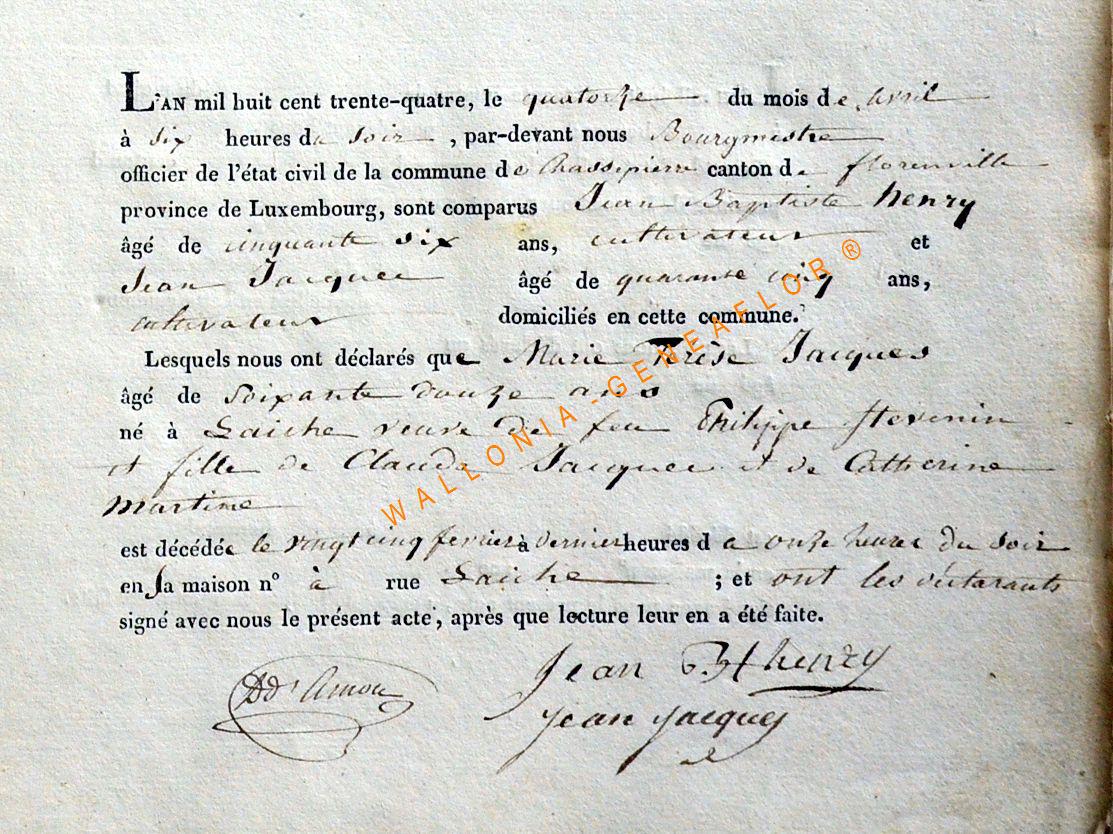 L'AN mil huit cent trente-quatre, le quatorze du mois de avril
à six heures du soir, par-devant nous Bourgmestre
officier de l'état civil de la commune de Chassepierre canton de florenville
province de Luxembourg, sont comparus Jean Baptiste henry
âgé de cinquante six ans, cultivateur et
Jean Jacques âgé de quarante cinq ans,
cultivateur domiciliés en cette commune.
Lesquels nous ont déclarés que Marie Terèse Jacques
âgé de soixante douze ans
né à Laiche veuve de feu Philippe Stevenin
et fille de Claude Jacques et de Catherine
martine
est décédée le vingt cinq fevrier à dernier heures d a onze heures du soir
en sa maison nº à rue Laiche ; et ont les déclarants
signé avec nous le présent acte, après que lecture leur en a été faite.
Jean henry
jean jacques
WALLONIA - GENEAFLOR ®